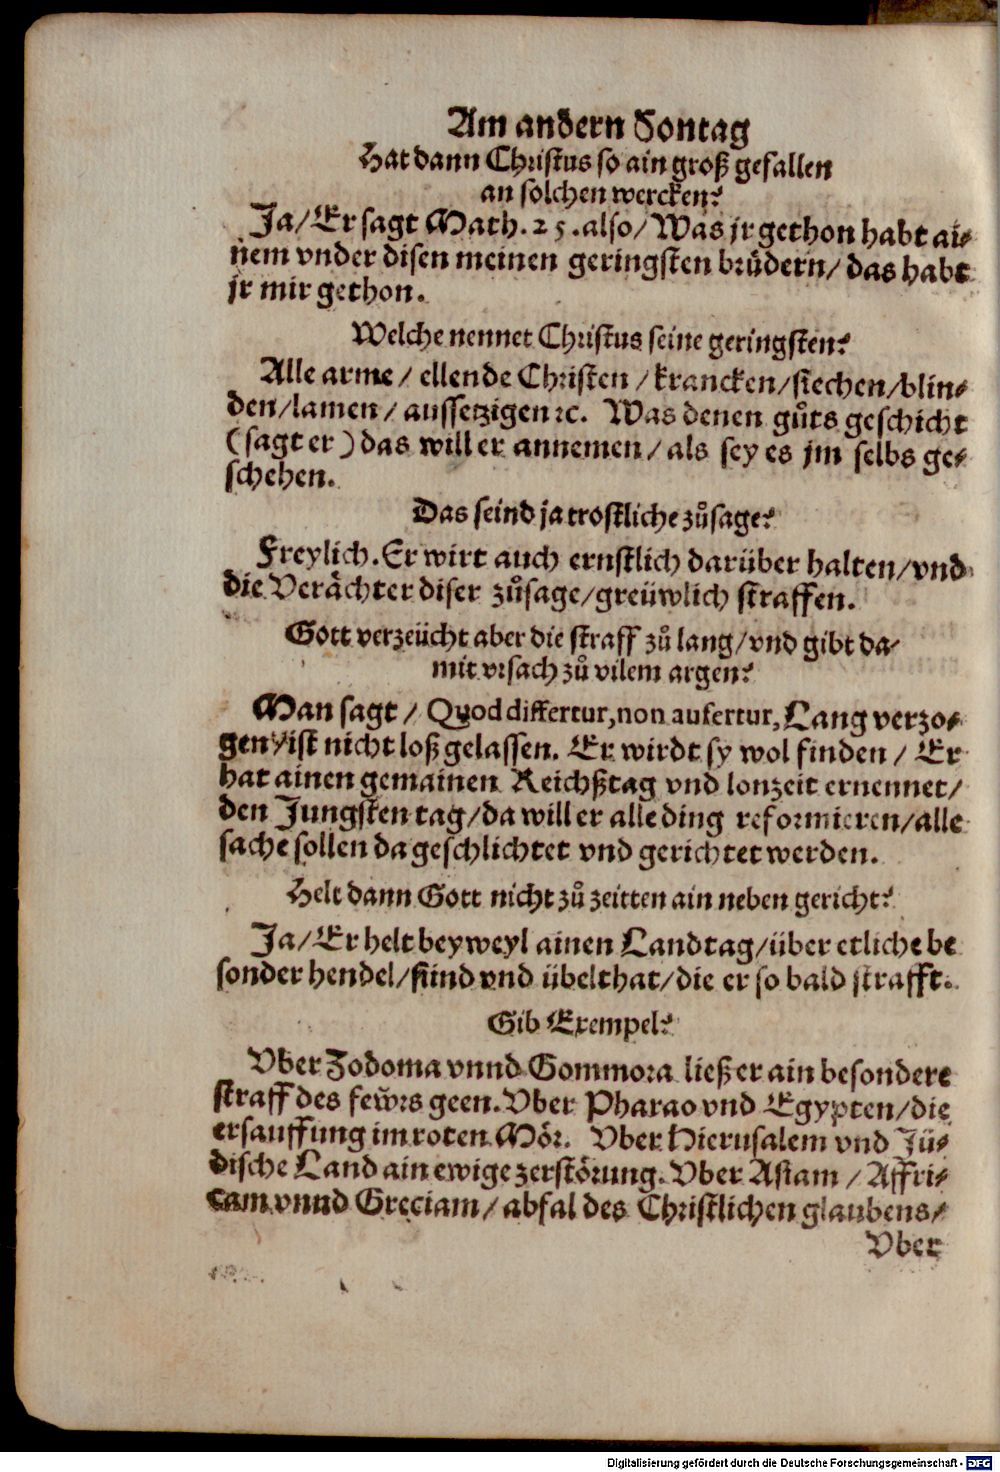 Am andern Sontag
Hat dann Christus so ain groß gefallen
an solchen wercken?
Ja/ Er sagt Math. 25. also/ Was jr gethon habt ai⸗
nem vnder disen meinen geringsten bruͤdern/ das habt
jr mir gethon.
Welche nennet Christus seine geringsten?
Alle arme/ ellende Christen/ krancken/ siechen/ blin⸗
den/ lamen/ aussetzigen ꝛc. Was denen guͦts geschicht
(sagt er) das will er annemen/ als sey es jm selbs ge⸗
schehen.
Das seind ja trostliche zuͦsage?
Freylich. Er wirt auch ernstlich darüber halten/ vnd
die Verächter diser zuͦsage/ greüwlich straffen.
Gott verzeücht aber die straff zuͦ lang/ vnd gibt da⸗
mit vrsach zuͦ vilem argen?
Man sagt/ Quod differtur, non aufertur, Lang verzo⸗
gen/ ist nicht loß gelassen. Er wirdt sy wol finden/ Er
hat ainen gemainen Reichßtag vnd lonzeit ernennet/
den Jungsten tag/ da will er alle ding reformieren/ alle
sache sollen da geschlichtet vnd gerichtet werden.
Helt dann Gott nicht zuͦ zeitten ain neben gericht?
Ja/ Er helt beyweyl ainen Landtag/ über etliche be
sonder hendel/ sünd vnd übelthat/ die er so bald strafft.
Gib Exempel?
Vber Zodoma vnnd Gommora ließ er ain besondere
straff des fewrs geen. Vber Pharao vnd Egypten/ die
ersauffung im roten Mör. Vber Hierusalem vnd Jü⸗
dische Land ain ewige zerstörung. Vber Asiam/ Affri⸗
cam vnnd Greciam/ abfal des Christlichen glaubens/
Vber
Digitalisierung gefördert durch die Deutsche Forschungsgemeinschaft - DFG